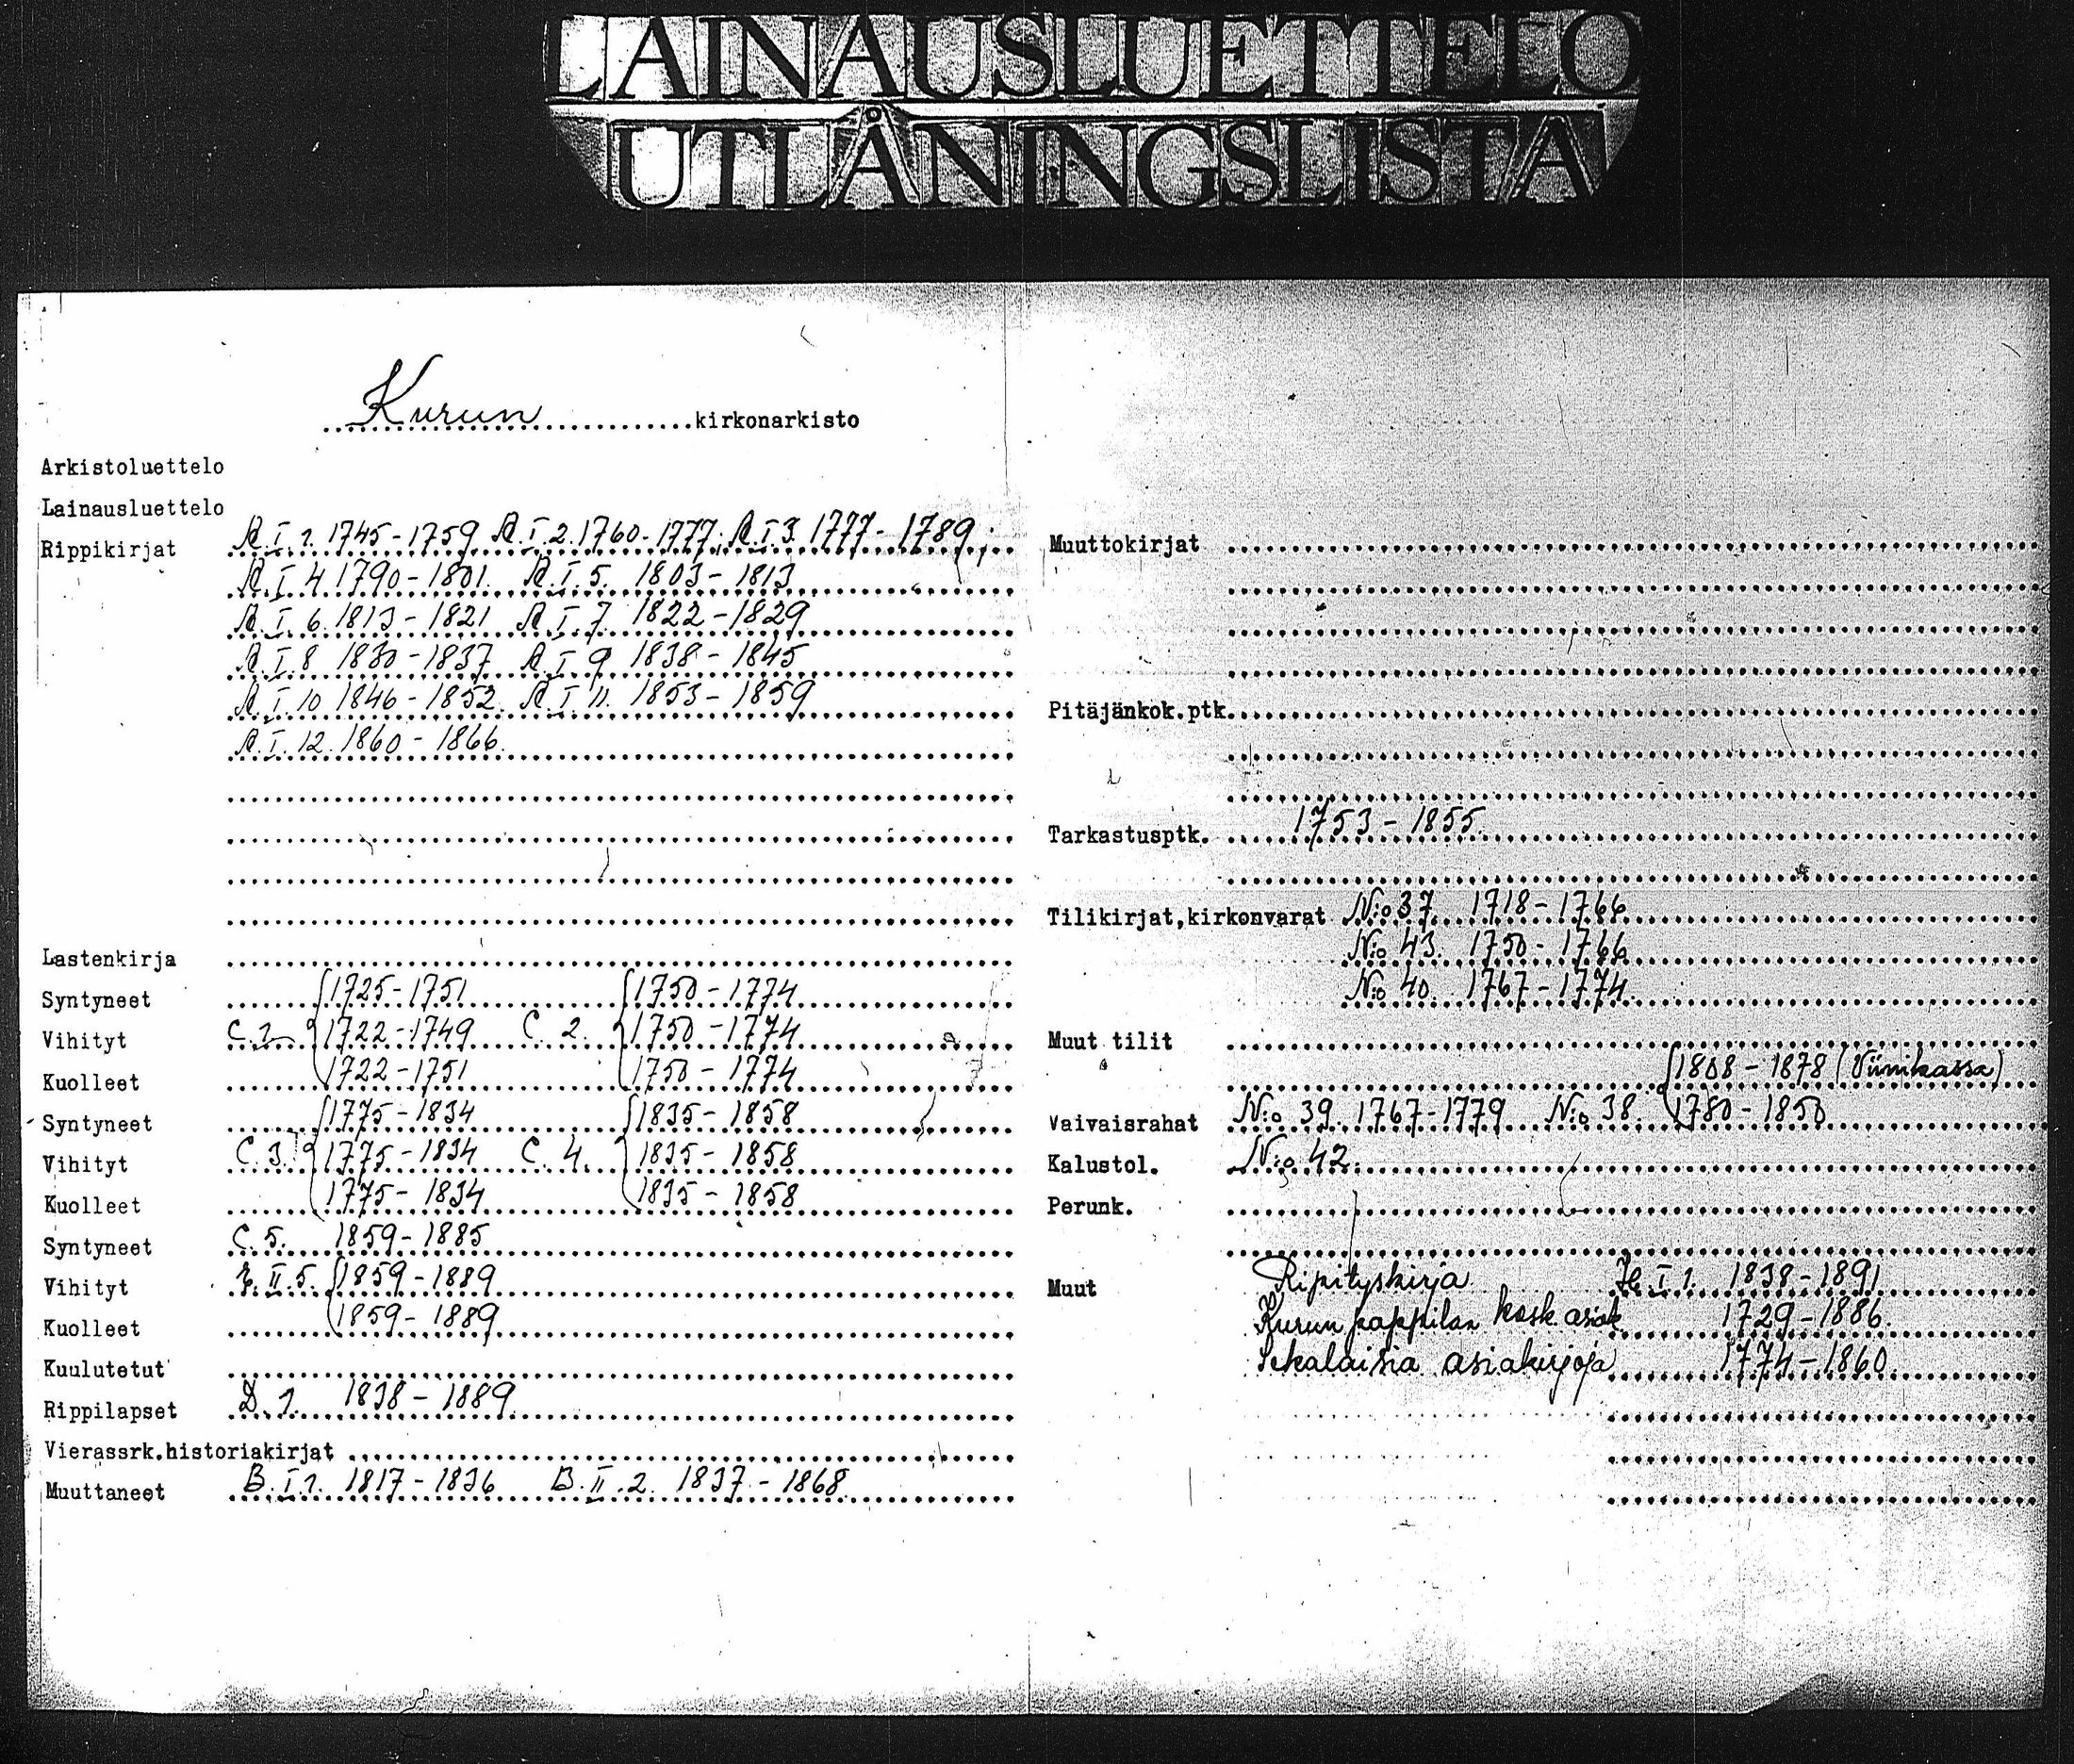 LAINAUSLUETTELO
UTLÅNINGSLISTA
Kurun kirkonarkisto
Arkistoluettelo
Lainausluettelo
Rippikirjat A.I.1. 1745-1759 A.I.2. 1760-1777; A.I.3. 1777-1789;
A.I.4 1790-1801. A.I.5. 1803-1813
A.I.6. 1813-1821 A.I.7. 1822-1829
A.I.8 1830-1837 A.I.9 1838-1845
A.I.10 1846-1852. A.I.11. 1853-1859
A.I.12. 1860-1866.
Lastenkirja
Syntyneet 1725-1751 1750-1774
Vihityt C.1. 1722-1749 C.2. 1750-1774
Kuolleet 1722-1751 1750-1774
Syntyneet 1775-1834 1835-1858
Vihityt C.3. 1775-1834 C.4. 1835-1858
Kuolleet 1775-1834 1835-1858
Syntyneet C.5. 1859-1885
Vihityt II.5. 1859-1889
Kuolleet 1859-1889
Kuulutetut
Rippilapset D.1. 1838-1889
Vierassrk.historiakirjat
Muuttaneet B.I.1. 1817-1836 B.II.2. 1837-1868.
Muuttokirjat
Pitäjänkok.ptk.
Tarkastusptk. 1753-1855.
Tilikirjat,kirkonvarat N:o 37. 1718-1766
N:o 43. 1750-1766
N:o 40. 1767-1774.
Muut tilit
1808-1878 (Viinikassa)
Vaivaisrahat N:o 39. 1767-1779 N:o 38. 1780-1850
Kalustol. N:o 42.
Perunk.
Muut Ripityskirja I 1. 1838-1891
Kurun pappilan kosk. asiak. 1729-1886.
Sekalaisia asiakirjoja 1774-1860.